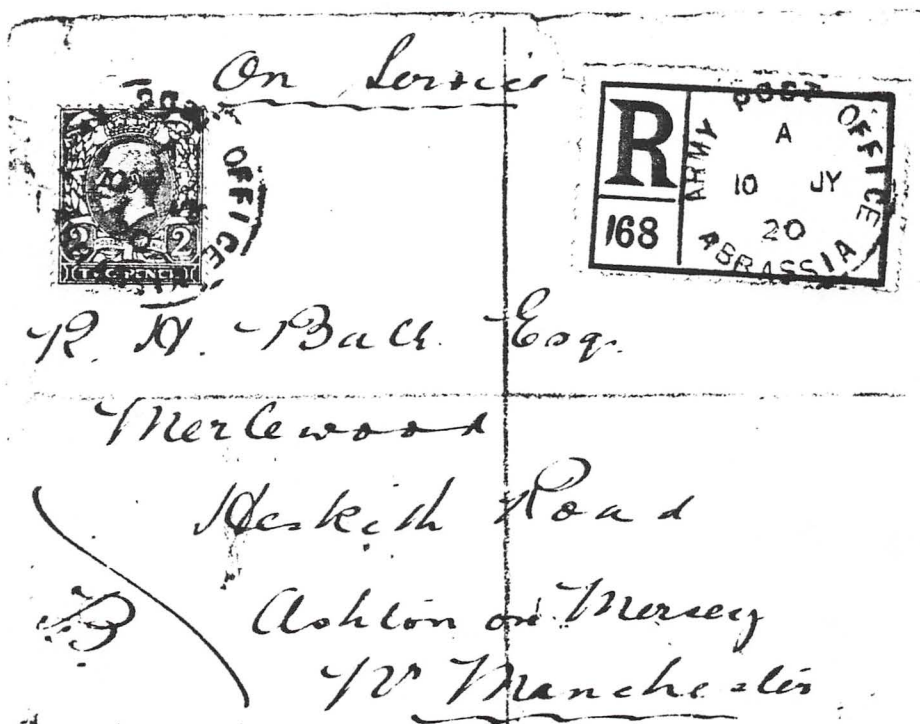 On Service
POST OFFICE
2 2
TWO PENCE
R
168
ARMY POST OFFICE
A
10 JY
20
ABBASSIA
R. H. Ball Esq.
Merlewood
Heskith Road
Ashton on Mersey
Nr Manchester